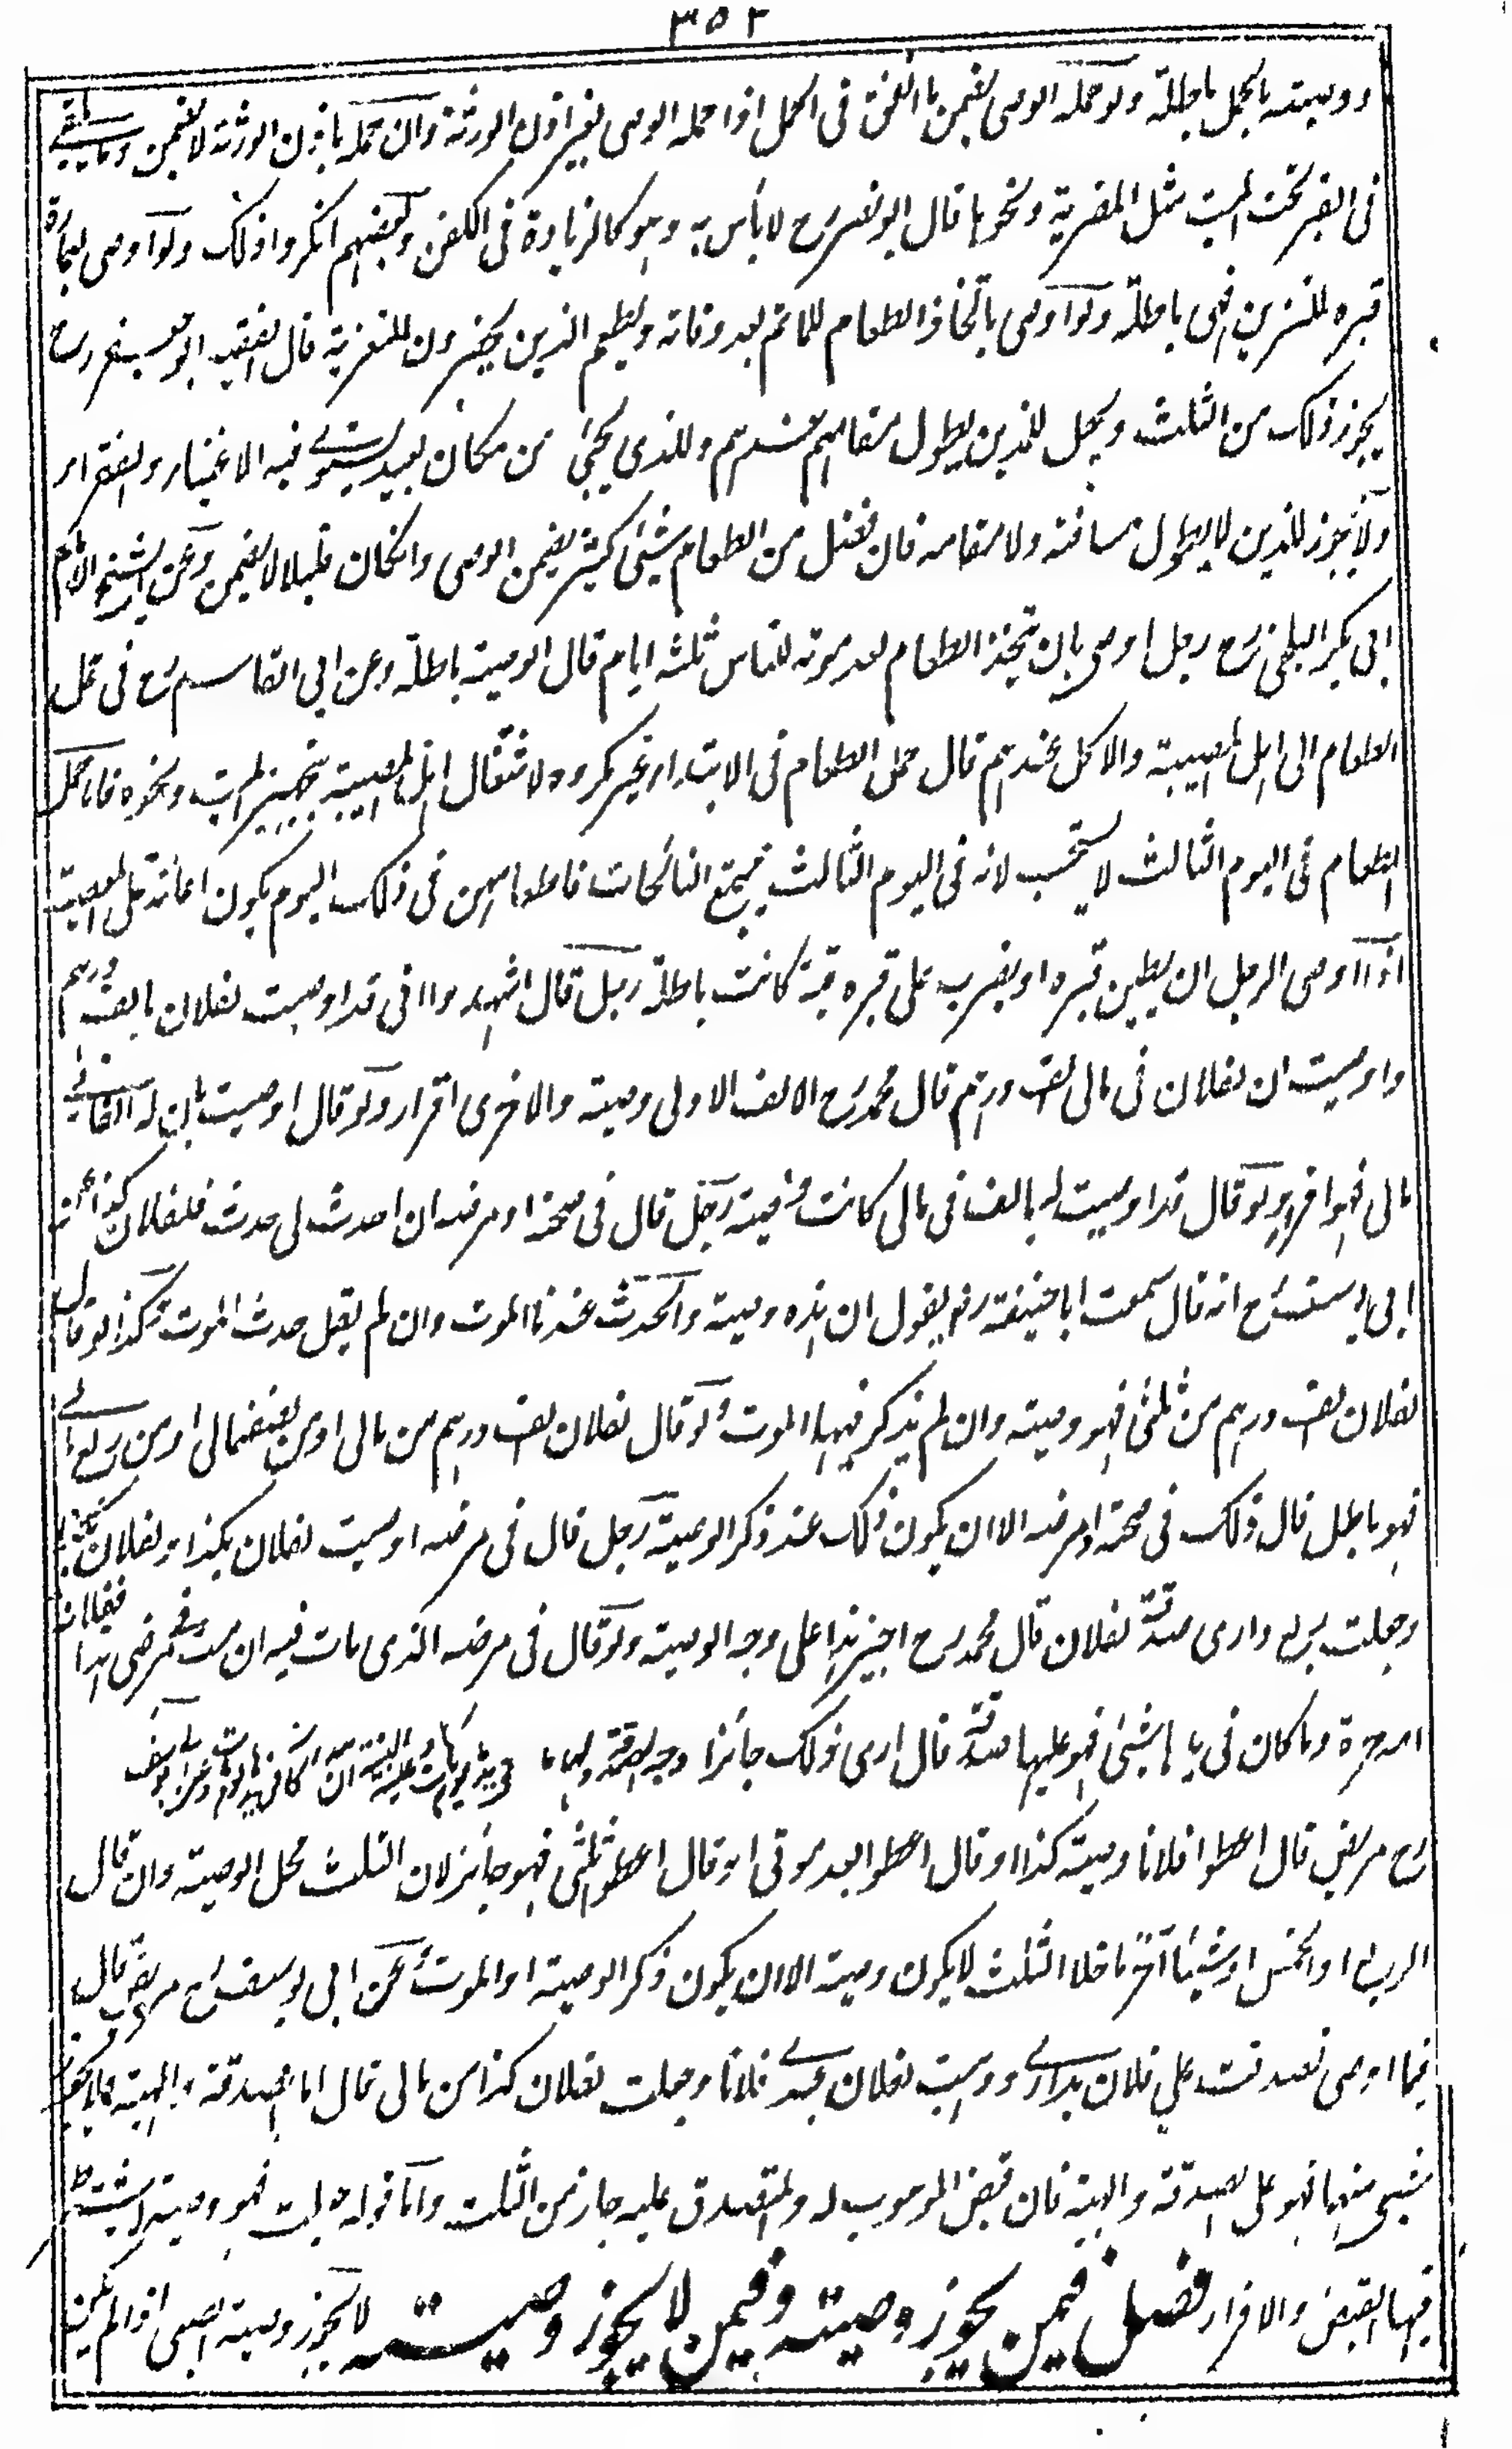 ٣٥٢
ووصيته بالحمل باطلة ولو حمله الوصى يضمن ما انفق فى الحمل اذا حمله الوصى بغير اذن الورثة وان حمله باذن الورثة لا يضمن وما يلقى
فى القبر تحت الميت مثل المضربة ونحوها قال ابو نصر رح لا بأس به وهو كالزيادة فى الكفن وبعضهم انكروا ذلك ولو اوصى بعمارة
قبره للتزيين فهى باطلة ولو اوصى باتخاذ الطعام للماتم بعد وفاته ويطعم الذين يحضرون للتعزية قال الفقيه ابو جعفر رح
يجوز ذلك من الثلث ويحل للذين يطول مقامهم عندهم وللذى يجئ من مكان بعيد يستوى فيه الاغنياء والفقراء
ولا يجوز للذين لا يطول مسافته ولا مقامه فان فضل من الطعام شيئ كثير يضمن الوصى وانكان قليلا لا يضمن وعن الشيخ الامام
ابى بكر البلخى رح رجل اوصى بان يتخذ الطعام بعد موته للناس ثلثة ايام قال الوصية باطلة وعن ابى القاسم رح فى حمل
الطعام الى اهل المصيبة والاكل عندهم قال حمل الطعام فى الابتداء غير مكروه لاشتغال اهل المصيبة بتجهيز الميت ونحوه فاما حمل
الطعام فى اليوم الثالث لا يستحب لانه فى اليوم الثالث يجتمع النائحات فاطعامهن فى ذلك اليوم يكون اعانة على المعصية
اذا اوصى الرجل ان يطين قبره او يضرب على قبره قبة كانت باطلة رجل قال اشهدوا انى قد اوصيت لفلان بالف درهم
واوصيت ان لفلان فى مالى الف درهم قال محمد رح الالف الاولى وصية والاخرى اقرار ولو قال اوصيت بان له الفا فى
مالى فهو اقرار ولو قال قد اوصيت له بالف فى مالى كانت وصية رجل قال فى صحته او مرضه ان احدث لى حدث فلفلان كذا عن
ابى يوسف رح انه قال سمعت ابا حنيفة رض يقول ان هذه وصية والحدث عندنا الموت وان لم يقل حدث الموت وكذا لو قال
لفلان الف درهم من ثلثى فهو وصية وان لم يذكر فيها الموت ولو قال لفلان الف درهم من مالى او من نصف مالى او من ربع مالى
فهو باطل قال ذلك فى صحته او مرضه الا ان يكون ذلك عند ذكر الوصية رجل قال فى مرضه اوصيت لفلان بكذا ولفلان بكذا
وجعلت ربع دارى صدقة لفلان قال محمد رح اجيز هذا على وجه الوصية ولو قال فى مرضه الذى مات فيه ان مت فى مرضى هذا ففلانة
امه حرة وما كان فى يدها شيئ فهو عليها صدقة قال ارى ذلك جائزا وجه الصدقة ولها ما فى يدها يوم مات وعليها البينة ان هذا كان فى يدها يوم مات وعن ابى يوسف
رح مريض قال اعطوا فلانا وصية كذا او قال اعطوا بعد موتى او قال اعطوا ثلثى فهو جائز لان الثلث محل الوصية وان قال
الربع او الخمس او شيئا آخر ما خلا الثلث لا يكون وصية الا ان يكون ذكر الوصية او الموت وعن ابى يوسف رح مريض قال
فيما اوصى تصدقت على فلان بدارى ووهبت لفلان عبدى فلانا وجعلت لفلان كذا من مالى قال اما الصدقة والهبة
شيئ منها فهو على الصدقة والهبة فان قبض الموهوب له والمتصدق عليه جاز من الثلث واما قوله جعلت فهو وصية لا يشترط
فيها القبض والافراز فصل فيمن يجوز وصيته وفيمن لا يجوز وصيته لا يجوز وصية الصبى اذا لم يكن